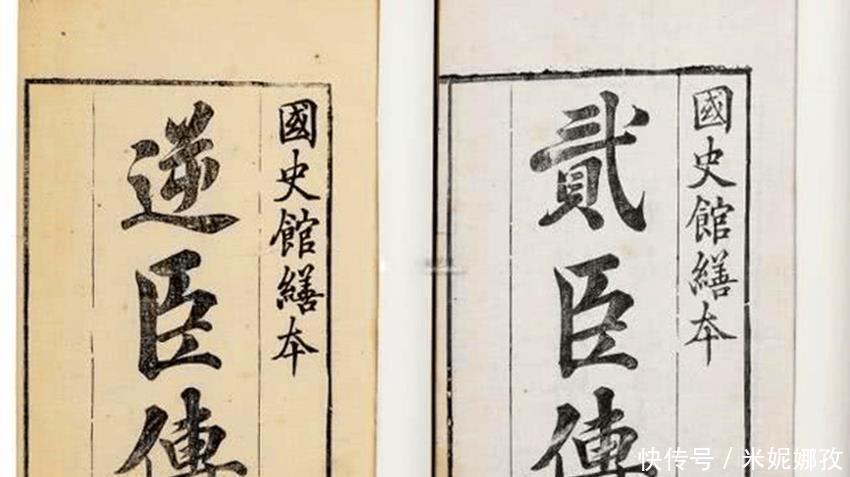 國史館繕本
貳臣傳
國史館繕本
逆臣傳
快传号／米妮娜孜